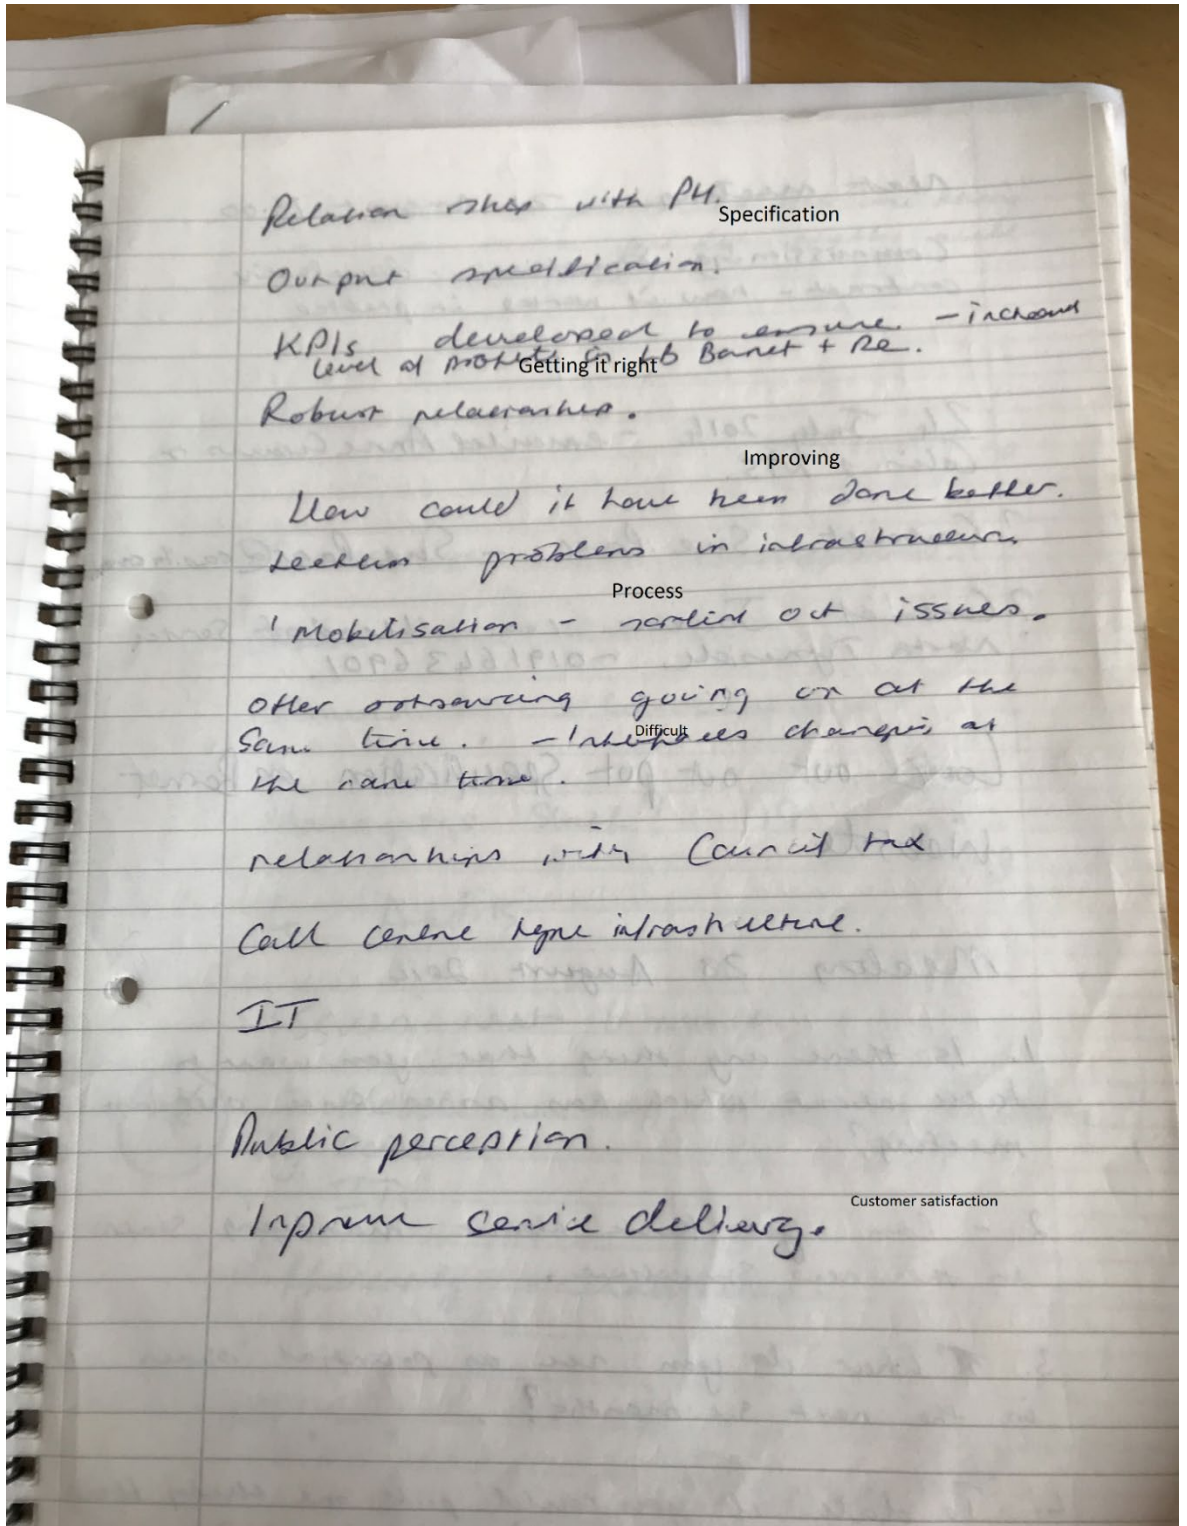 Relationship with PH.
Specification
Output specification.
KPIs developed to ensure - increased
level of to LB Barnet + Re.
Getting it right
Robust relationship.
Improving
How could it have been done better.
teething problems in infrastructure
Process
'Mobilisation - sorting out issues.
Other outsourcing going on at the
Same time. - Interfaces changing at
Difficult
the same time.
relationships with Council tax
Call centre type infrastructure.
IT
Public perception.
Customer satisfaction
Improve service delivery.